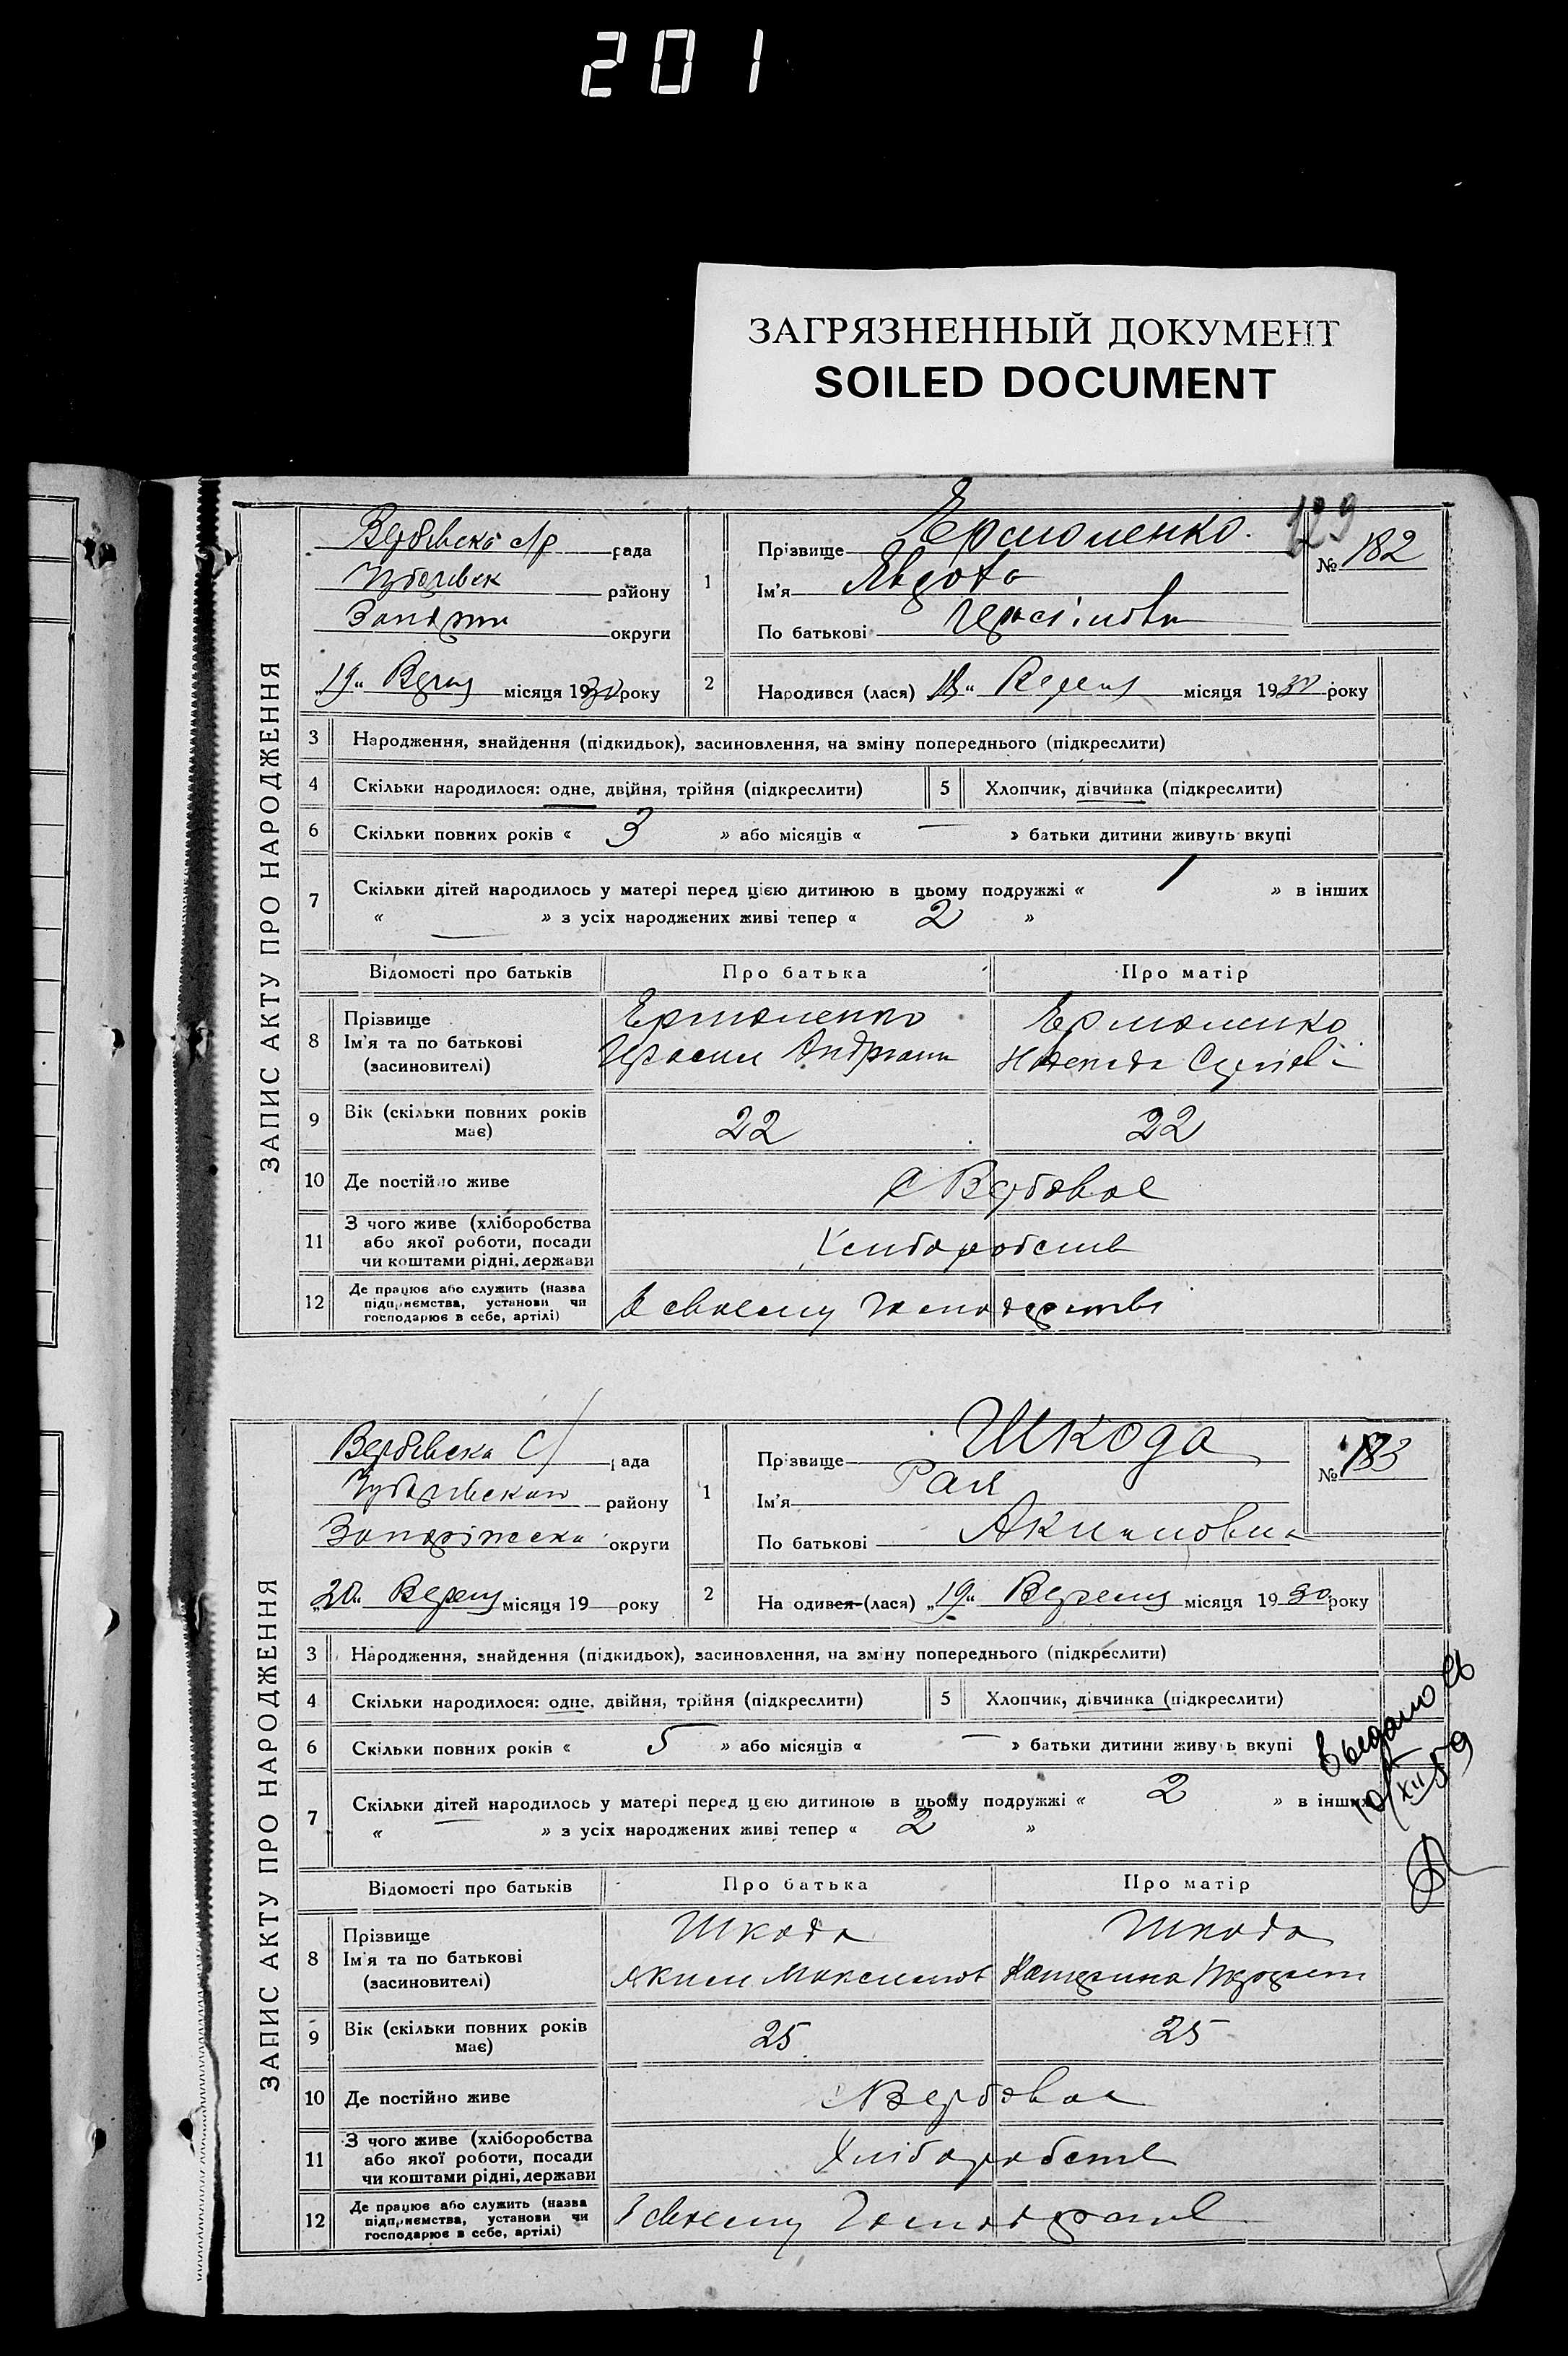 201
ЗАГРЯЗНЕННЫЙ ДОКУМЕНТ
SOILED DOCUMENT
129
ЗАПИС АКТУ ПРО НАРОДЖЕННЯ
Вербівська с/р рада
району
округи
„19“ місяця 1930 року
1
Прізвище Ермоленко.
Ім'я Явдоха
По батькові Герасімовн
№ 182
2 Народився (лася) „18“ місяця 1930 року
3 Народження, знайдення (підкидьок), засиновлення, на зміну попереднього (підкреслити)
4 Скільки народилося: одне, двійня, трійня (підкреслити) 5 Хлопчик, дівчинка (підкреслити)
6 Скільки повних років « 3 » або місяців « — » батьки дитини живуть вкупі
7 Скільки дітей народилось у матері перед цією дитиною в цьому подружжі « 1 » в інших
« — » з усіх народжених живі тепер « 2 »
Відомості про батьків Про батька Про матір
8 Прізвище Ермоленко Ермоленко
Ім'я та по батькові Андреан
(засиновителі)
9 Вік (скільки повних років має) 22 22
10 Де постійно живе с Вербовое
11 З чого живе (хліборобства
або якої роботи, посади
чи коштами рідні, держави
12 Де працює або служить (назва
підприємства, установи чи
господарює в себе, артілі)
ЗАПИС АКТУ ПРО НАРОДЖЕННЯ
Вербівська с/ рада
району
Запоріжська округи
„20“ місяця 19 року
1
Прізвище Шкода
Ім'я Рая
По батькові Акимовна
№ 183
2 На одився (лася) „19“ місяця 1930 року
3 Народження, знайдення (підкидьок), засиновлення, на зміну попереднього (підкреслити)
4 Скільки народилося: одне, двійня, трійня (підкреслити) 5 Хлопчик, дівчинка (підкреслити)
6 Скільки повних років « 5 » або місяців « — » батьки дитини живуть вкупі
7 Скільки дітей народилось у матері перед цією дитиною в цьому подружжі « 2 » в інших
« — » з усіх народжених живі тепер « 2 »
выдано св
10/XII 59
Відомості про батьків Про батька Про матір
8 Прізвище Шкода Шкода
Ім'я та по батькові Аким Максимов Катерина
(засиновителі)
9 Вік (скільки повних років має) 25 25
10 Де постійно живе с Вербовое
11 З чого живе (хліборобства
або якої роботи, посади
чи коштами рідні, держави
12 Де працює або служить (назва
підприємства, установи чи
господарює в себе, артілі)